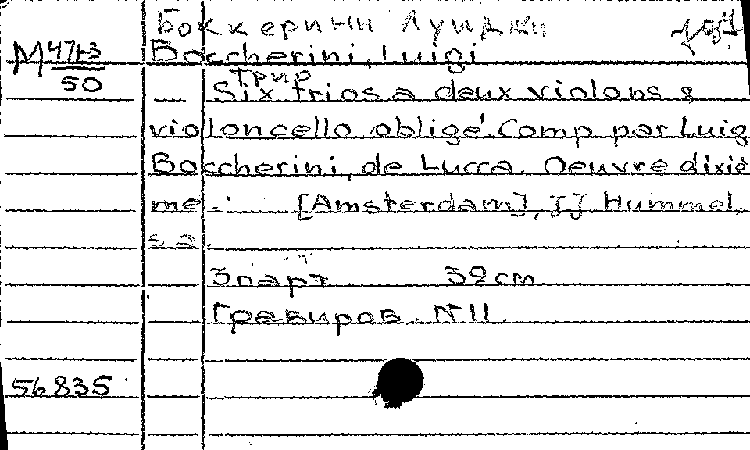 Боккерини Луиджи
М 47 13
50
Boccherini, Luigi
трио
Six trios a deux violons &
violoncello obligé. Comp par Luig
Boccherini, de Lucca. Oeuvre dixiè
me.- [Amsterdam], J J Hummel,
s a.
3 парт 32 cm
Гравиров. N 11.
56835